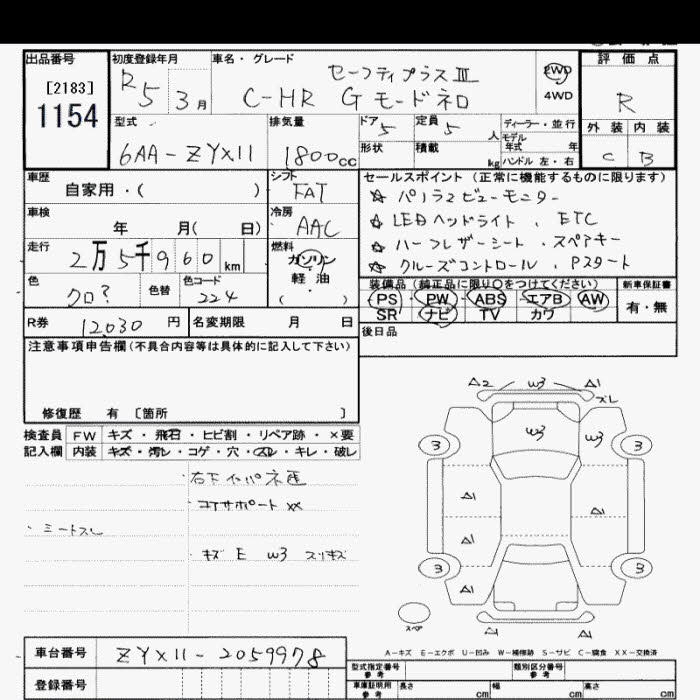 出品番号
[2183]
1154
初度登録年月
R5 3月
車名・グレード
セーフティプラスⅢ
C-HR G モードネロ
2WD
4WD
評価点
R
外装 内装
C B
型式
6AA-ZYX11
排気量
1800cc
ドア 5
定員 5 人
形状
積載 kg
ディーラー・並行
モデル年式 年
ハンドル 左・右
車歴
自家用・( )
シフト
FAT
車検
年 月( 日)
冷房
AAC
走行
2万5千960km
燃料
ガソリン
軽・油
( )
色
クロ?
色替
色コード
224
セールスポイント(正常に機能するものに限ります)
☆ パノラマビューモニター
☆ LEDヘッドライト、ETC
☆ ハーフレザーシート、スペアキー
☆ クルーズコントロール、Pスタート
装備品(純正品に限り○をつけてください)
PS PW ABS エアB AW
SR ナビ TV カワ
新車保証書
有・無
R券 12030円
名変期限 月 日
後日品
注意事項申告欄(不具合内容等は具体的に記入して下さい)
修復歴 有 〔箇所 〕
検査員記入欄
FW キズ・飛石・ヒビ割・リペア跡・×要
内装 キズ・汚レ・コゲ・穴・スレ・キレ・破レ
・コアサポート XX
・シートスレ
・キズ E W3 スリキズ
A2 W3 A1
ズレ
W3 W3
3 3
A1
A1
A1
3 3
A1
スペア
A1 A1
A-キズ E-エクボ U-凹み W-補修跡 S-サビ C-腐食 XX-交換済
車台番号
ZYX11-2059978
登録番号
型式指定番号 参考
類別区分番号 参考
車庫証明用 参考
長さ cm
幅 cm
高さ cm